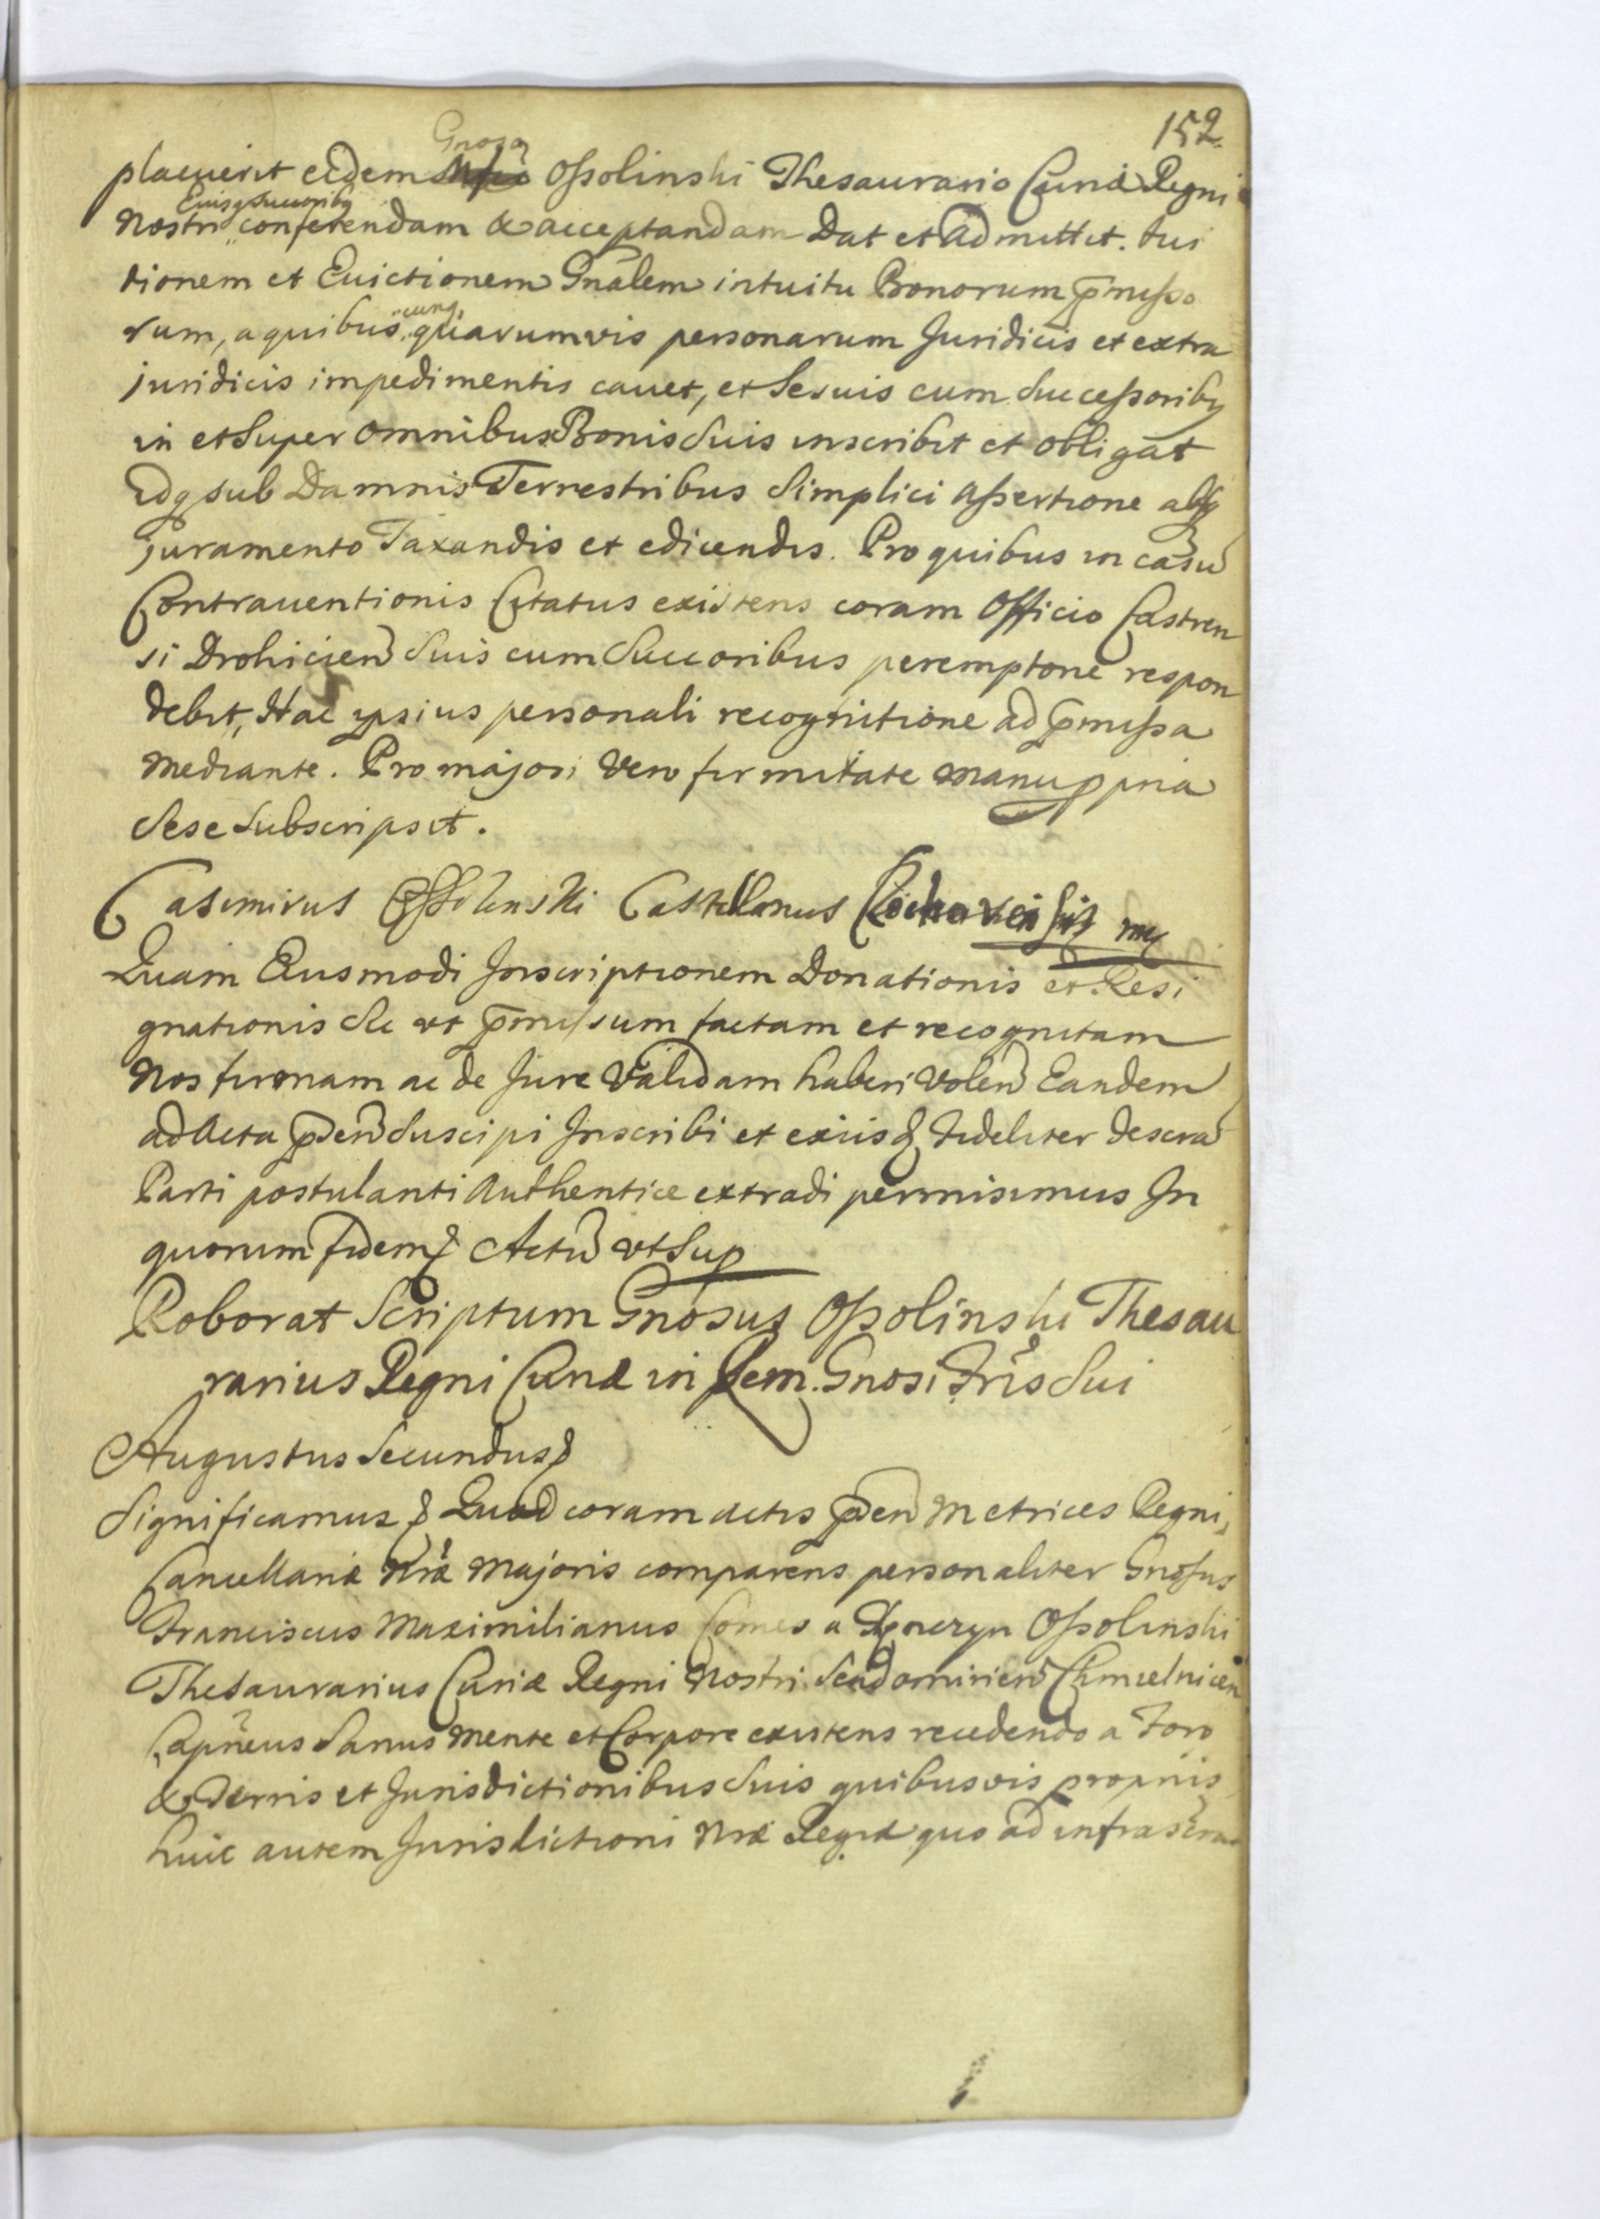 152.
Gnoso
placuerit eidem Ossolinski Thesaurario Curiæ Regni
Eiusq succoribq
Nostri conferendam & acceptandam Dat et admittit. tui
tionem et Euictionem Gnãlem intuitu Bonorum p̃misso
cunq
rum, a quibus quarumvis personarum Juridicis et extra
juridicis impedimentis cauet, et Se suis cum Successoribq
in et Super omnibus Bonis Suis inscribit et obligat
idq sub Damnis Terrestribus Simplici assertione absq
juramento Taxandis et edicendis. Pro quibus in casu
Contrauentionis Citatus existens coram Officio Castren
si Drohicien̄ Suis cum Succoribus peremptorie respon
debit, Hac ipsius personali recognitione ad p̃missa
mediante. Pro majori vero firmitate manu ppria
Sese Subscripsit.
Casimirus Ossolinski Castellanus mp
Quam Eiusmodi Inscriptionem Donationis et Resi
gnationis Sic vt p̃missum factam et recognitam
Nos firmam ac de Jure Validam haberi Volen̄ Eandem
ad Acta p̃sen̄ Suscipi Inscribi et exiis & fideliter descra
Parti postulanti Authentice extradi permisimus In
quorum fidem & Actũ vt Sup
Roborat Scriptum Gnosus Ossolinski Thesau
rarius Regni Curiæ in Rem Gnosi Fris Sui
Augustus Secundus &
Significamus & Quod coram actis p̃sen̄ Metrices Regni,
Cancellariæ Nræ Majoris comparens personaliter Gnosus
Franciscus Maximilianus Comes a Tęnczyn Ossolinski
Thesaurarius Curiæ Regni Nostri Sendomirien̄ Chmielnicen̄
Capñeus Sanus mente et Corpore existens recedendo a Foro
& Terris et Jurisdictionibus Suis quibusvis propriis
huic autem Jurisdictioni Nræ Regiæ quo ad infrascra